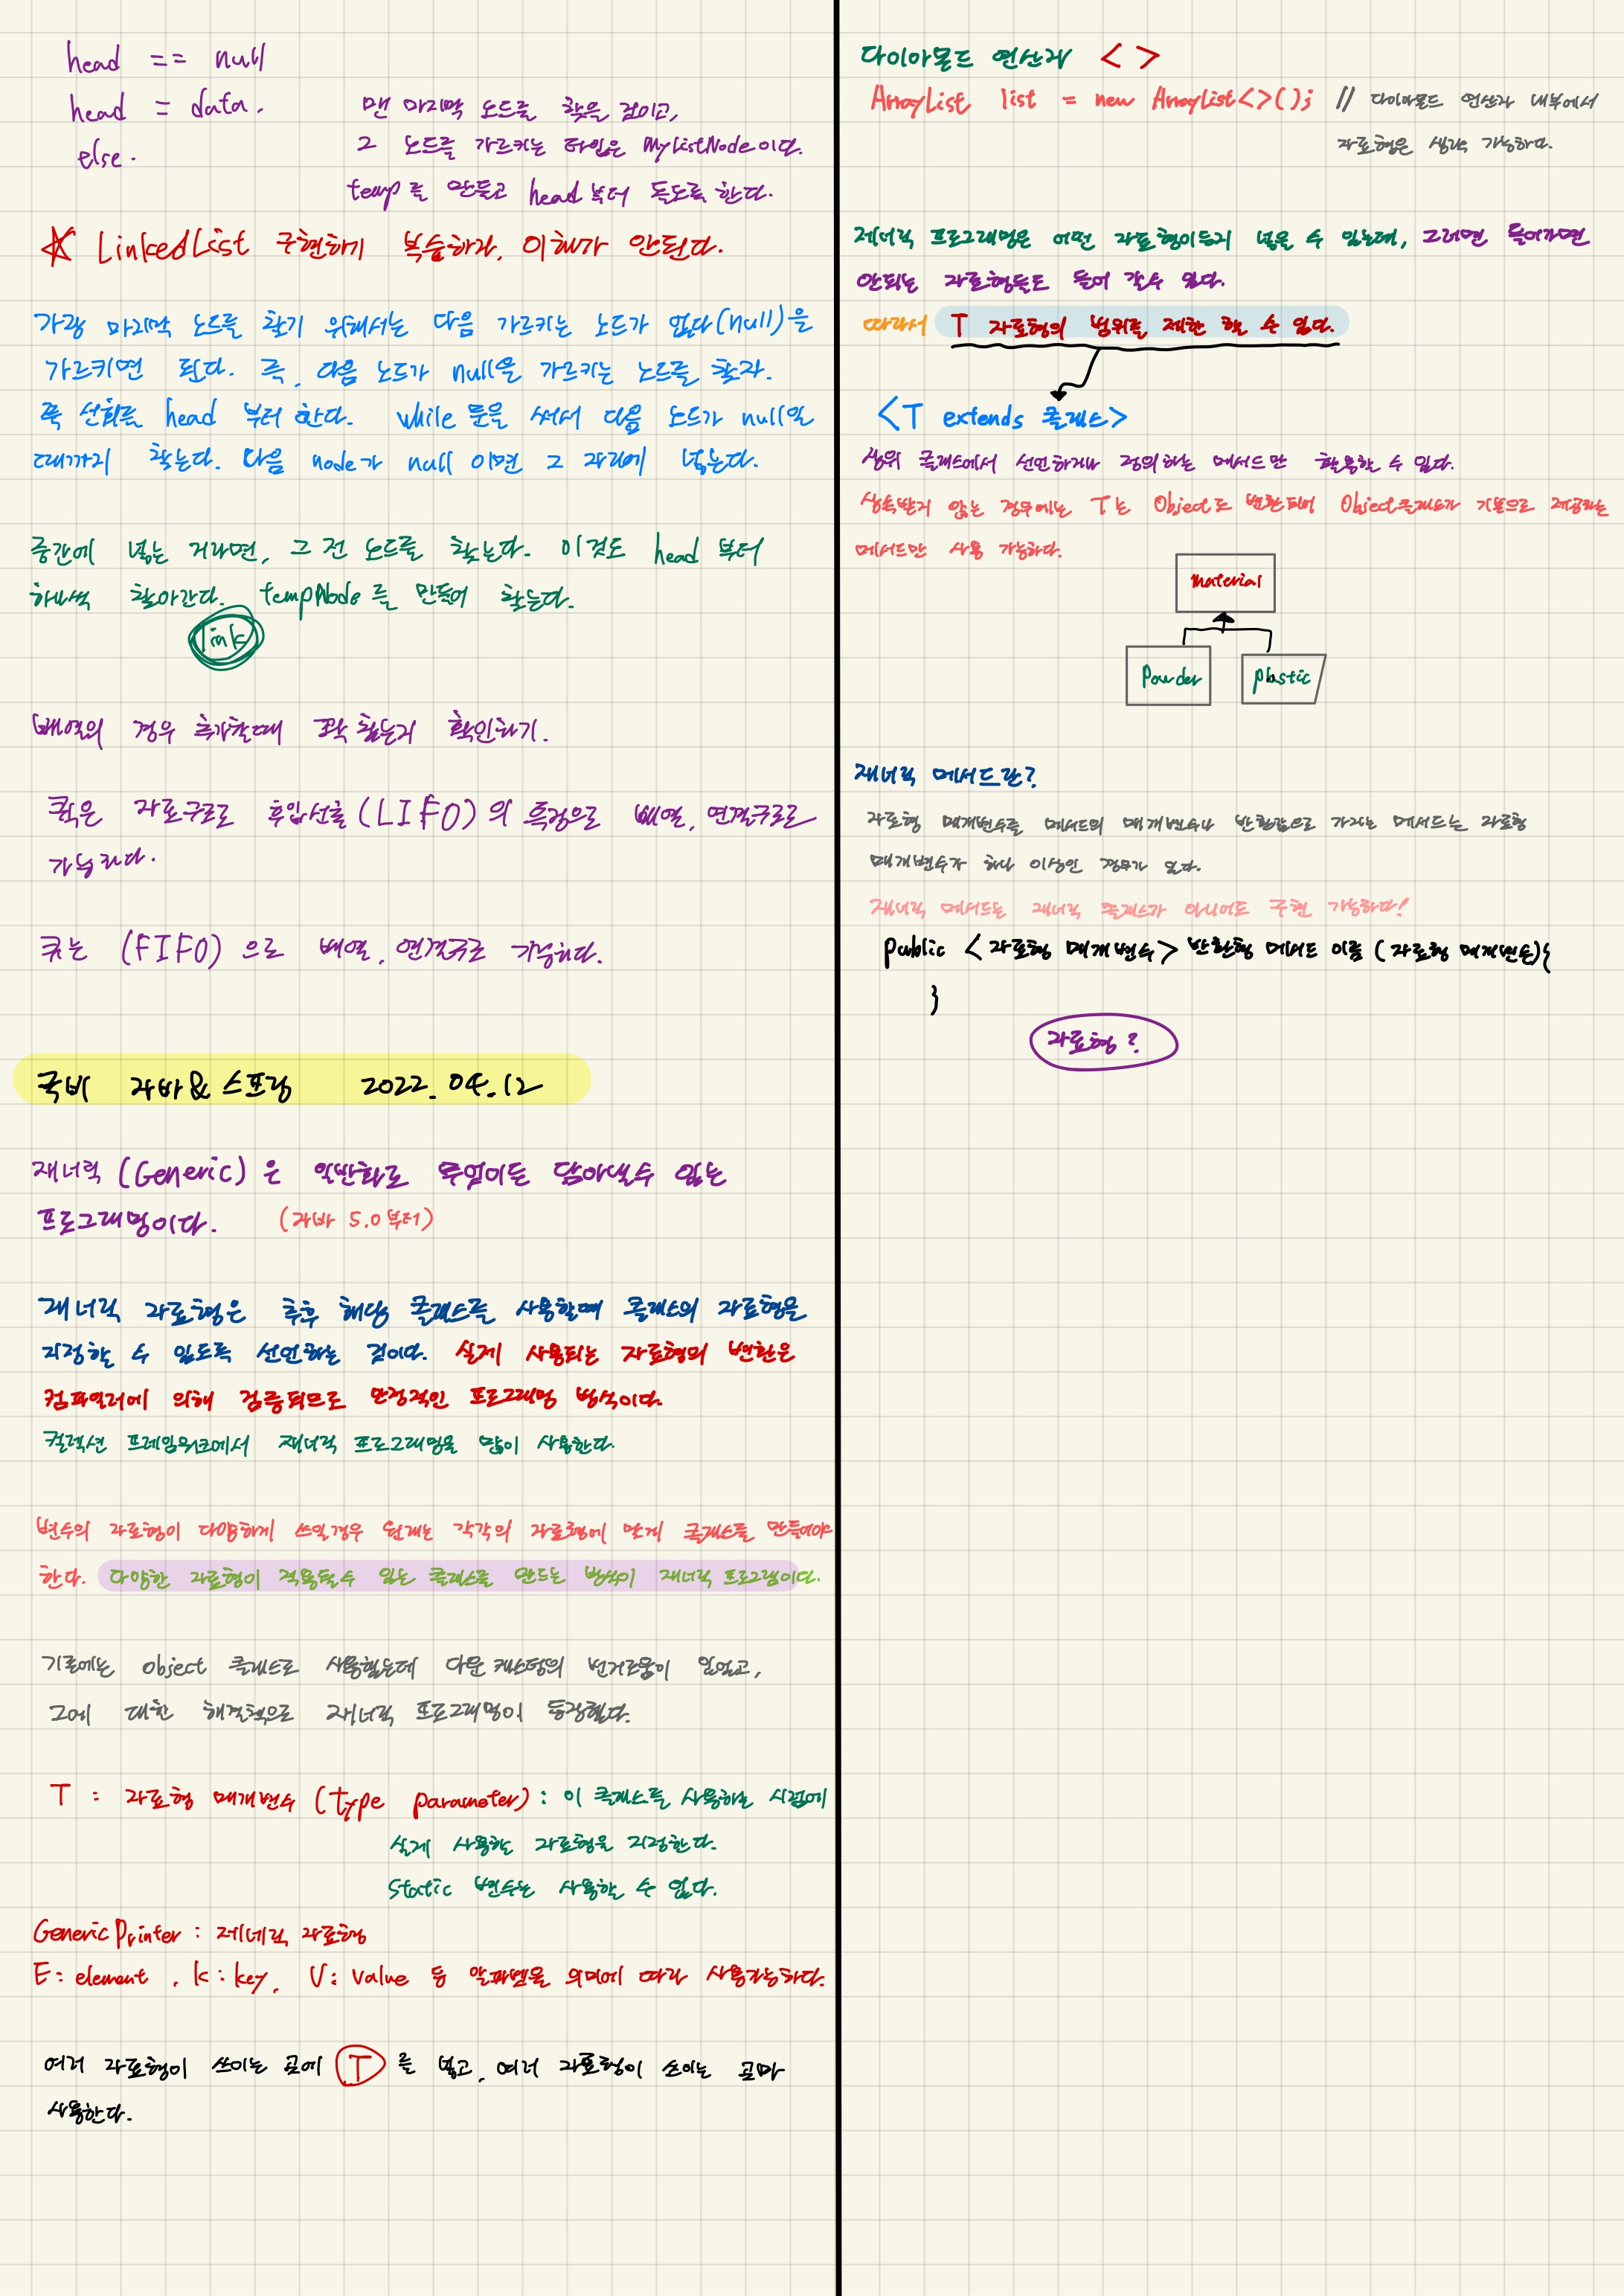 head == null
head = data.
else.
맨 마지막 노드를 찾을 것이고,
그 노드를 가르키는 타입은 MyListNode이다.
temp를 만들고 head부터 돌도록 한다.
LinkedList 구현하기 복습하라, 이해가 안된다.
가장 마지막 노드를 찾기 위해서는 다음 가르키는 노드가 없다(null)을
가르키면 된다. 즉, 다음 노드가 null을 가르키는 노드를 찾자.
쭉 순회를 head 부터 한다. while 문을 써서 다음 노드가 null일
때까지 찾는다. 다음 node가 null 이면 그 자리에 넣는다.
중간에 넣는 거라면, 그 전 노드를 찾는다. 이것도 head 부터
하나씩 찾아간다. tempNode를 만들어 찾는다.
link
배열의 경우 추가할때 꽉 찼는지 확인하기.
스택은 자료구조로 후입선출(LIFO)의 특징으로 배열, 연결구조로
가능하다.
큐는 (FIFO)으로 배열, 연결구조 가능하다.
국비 자바&스프링 2022.04.12
재너릭(Generic)은 일반화로 무엇이든 담아낼수 있는
프로그래밍이다. (자바 5.0부터)
재너릭 자료형은 추후 해당 클래스를 사용할때 클래스의 자료형을
지정할 수 있도록 선언하는 것이다. 실제 사용되는 자료형의 변환은
컴파일러에 의해 검증되므로 안정적인 프로그래밍 방식이다.
컬렉션 프레임워크에서 재너릭 프로그래밍을 많이 사용한다.
변수의 자료형이 다양하게 쓰일경우 원래는 각각의 자료형에 맞게 클래스를 만들어야
한다. 다양한 자료형이 적용될수 있는 클래스를 만드는 방식이 재너릭 프로그램이다.
기존에는 object 클래스로 사용했는데 다운 캐스팅의 번거로움이 있었고,
그에 대한 해결책으로 재너릭 프로그래밍이 등장했다.
T : 자료형 매개변수(type parameter) : 이 클래스를 사용하는 시점에
실제 사용할 자료형을 지정한다.
Static 변수는 사용할 수 없다.
GenericPrinter : 제네릭 자료형
E: element, k: key, V: value 등 알파벳을 의미에 따라 사용가능하다.
여러 자료형이 쓰이는 곳에 T를 넣고, 여러 자료형이 쓰이는 곳마다
사용한다.
다이아몬드 연산자 < >
ArrayList list = new ArrayList<>(); // 다이아몬드 연산자 내부에서
자료형은 생략 가능하다.
제너릭 프로그래밍은 어떤 자료형이든지 넣을 수 있는데, 그러면 들어가면
안되는 자료형들도 들어 갈수 있다.
따라서 T 자료형의 범위를 제한 할 수 있다.
<T extends 클래스>
상위 클래스에서 선언하거나 정의하는 메서드만 활용할 수 있다.
상속받지 않는 경우에는 T는 Object로 변환되어 Object클래스가 기본으로 제공하는
메서드만 사용 가능하다.
material
Powder
plastic
재너릭 메서드란?
자료형 매개변수를 메서드의 매개변수나 반환값으로 가지는 메서드는 자료형
매개변수가 하나 이상인 경우가 있다.
재너릭 메서드는 재너릭 클래스가 아니어도 구현 가능하다!
public <자료형 매개변수> 반환형 메서드 이름 (자료형 매개변수){
}
자료형?